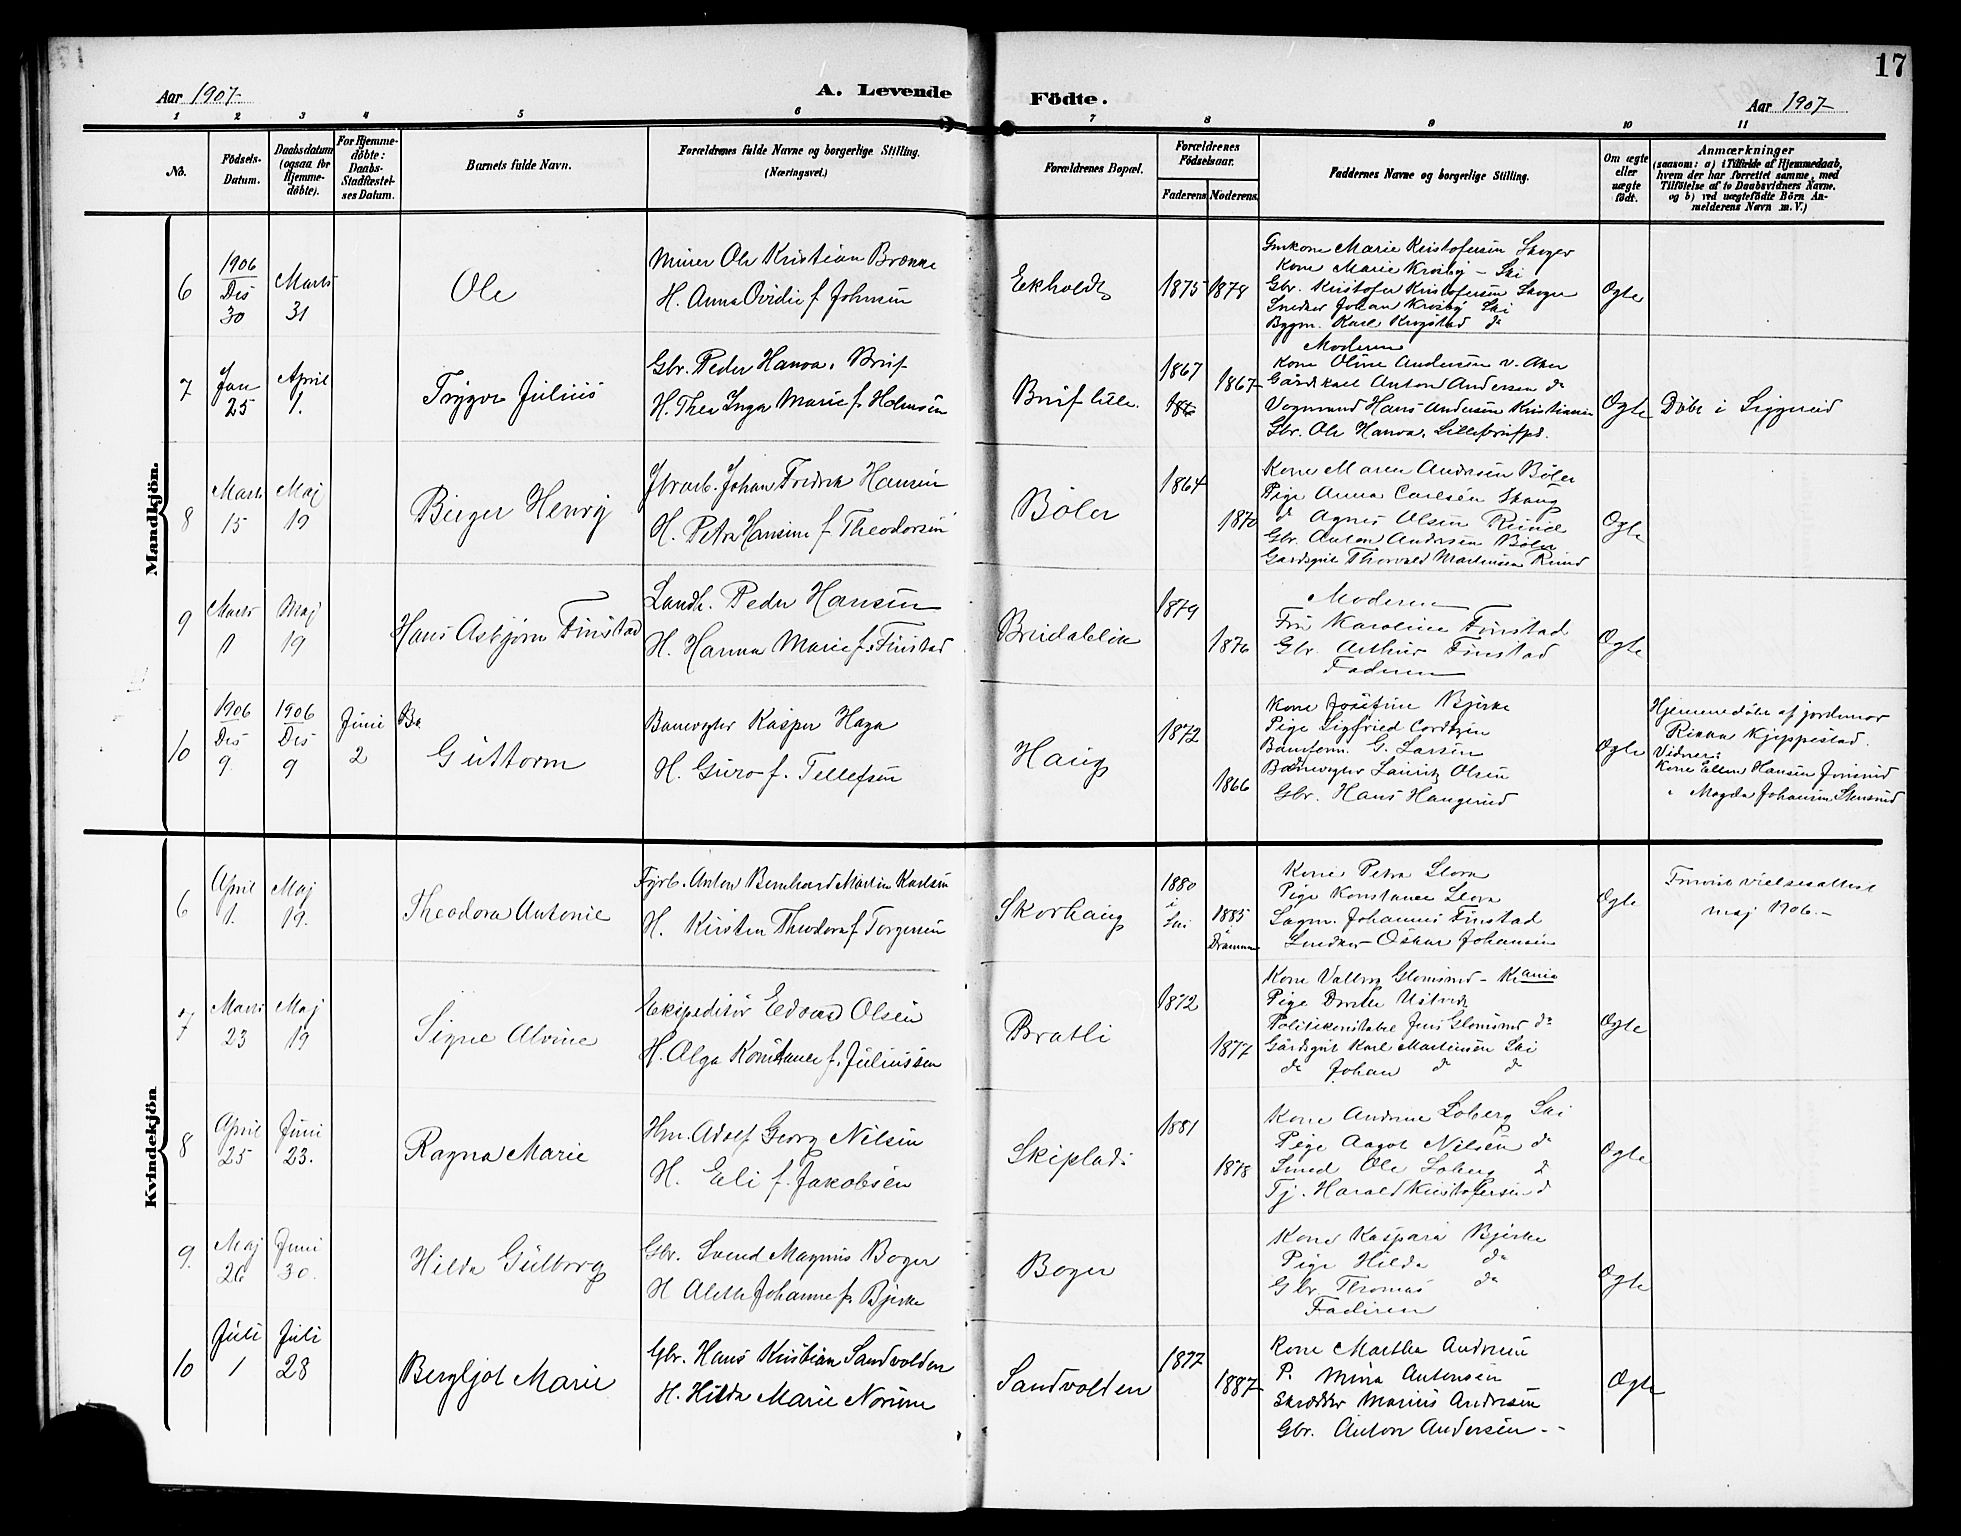 17
Aar 1907
A. Levende Födte.
Aar 1907
1 2 3 4 5 6 7 8 9 10 11
No.
Födsels-Datum.
Daabsdatum (ogsaa for Hjemme-döbte).
For Hjemme-döbte: Daabs-Stadfæstel-ses Datum.
Barnets fulde Navn.
Forældrenes fulde Navne og borgerlige Stilling.
(Næringsvei.)
Forældrenes Bopæl.
Forældrenes Födselsaar.
Faderens Moderens
Faddernes Navne og borgerlige Stilling.
Om ægte eller uægte födt.
Anmærkninger
(saasom: a) i Tilfælde af Hjemmedaab,
hvem der har forrettet samme, med
Tilföielse af to Daabsvidners Navne.
og b) ved uægtefödte Börn An-
melderens Navn m. V.)
Mandkjön.
6
1906
Des
30
Marts
31
Ole
Murer Ole Kristian
H. Anna Ovidie f. Johnsen
Ekholdt
1875 1878
Marie Kristofersen Skoger
Kone Marie Krosby - Ski
Gbr. Kristofer Kristofersen Skoger
Snedker Johan Krosby Ski
Bygm. Karl Krogstad do
Ægte
7
Jan
25
April
1.
Trygve Julius
Gbr. Peder Hanoa,
H. Thea Inga Marie f. Holmsen
1867
1867
Moderen
Kone Oline Andersen v. Aker
Gårdkarl Anton Andersen do
Vognmand Hans Andersen Kristiania
Gbr. Ole Hanoa,
Ægte
Döbt i
8
Marts
15
Maj
19
Birger Henry
Johan Fredrik Hansen
H. Petra Hansine f. Theodorsen
Bøler
1864
1870
Kone Maren Andersen Bøler
Pige Anna Carlsen Skaug
d Agnes Olsen
Gbr. Anton Andersen Bøler
Gardsgut Thorvald Martinsen
Ægte
9
Marts
11
Maj
19
Hans Asbjørn Finstad
Landh. Peder Hansen
H. Hanna Marie f. Finstad
1879
1876
Moderen
Fru Karoline Finstad
Gbr. Arthur Finstad
Faderen
Ægte
10
1906
Des
9
1906
Des
9
Juni
2
Guttorm
Banevogter Kasper Haga
H. Guro f. Tellefsen
Haug
1872
1866
Kone Josefine Bjerke
Pige Sigfried
Baneform. G. Larsen
Banevogter Lauritz Olsen
Gbr. Hans Haugerud
Ægte
Hjemmedöbt af jordemor
Kjeppestad.
Vidner:
Kone Ellen Hansen
" Magda Johansen Stensrud
Kvindekjön
6
April
1.
Maj
19.
Theodora Antonie
Fyrb. Anton Bernhard Martin Karlsen
H. Kirsten Theodora f. Torgersen
Skorhaug
1880
i
Ski
1885
i
Drammen
Kone Petra Slora
Pige Konstance Slora
Sagm. Johannes Finstad
Snedker Oskar Johansen
Ægte
Forevist vielsesattest
maj 1906.-
7
Marts
23
Maj
19
Signe Alvine
Ekspeditör Edvard Olsen
H. Olga Konstance f. Juliussen
Bratli
1872
1877
Kone Valborg Glomsrud - Kr.ania
Pige Dorthe
Politikonstabel Jens Glomsrud do
Gårdsgut Karl Martinsen Ski
do Johan do do
Ægte
8
April
25
Juni
23.
Ragna Marie
Hm. Adolf Georg Nilsen
H. Eli f. Jakobsen
Skiplads
1881
1878
Kone Andrine Loberg Ski
Pige Aagot Nilsen do
Smed Ole Loberg d
Tj. Harald Kristofersen d
Ægte
9.
Maj
26
Juni
30.
Hilda Gulborg
Gbr. Svend Magnus Boger
H Aleth Johanne f. Bjerke
Boger
Kone Kaspara Bjerke
Pige Hilda do
Gbr Thomas do
Faderen
Ægte
10
Juli
1
Juli
28
Bergljot Marie
Gbr. Hans Kristian Sandvolden
H. Hilda Marie Norum
Sandvolden
1877
1887
Kone Martha Andersen
P. Mina Antonsen
Skrædder Marius Andersen
Gbr. Anton Andersen.-
Ægte